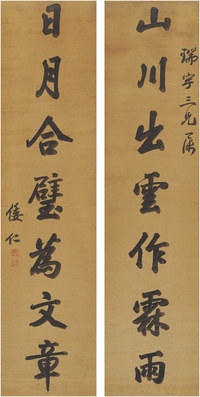 山川出雲作霖雨
瑞宇三兄屬
日月合璧為文章
倭仁